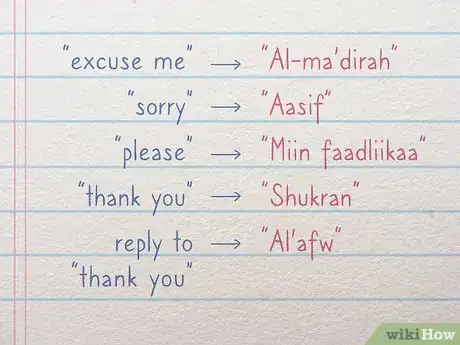 "excuse me" → "Al-ma'dirah"
"sorry" → "Aasif"
"please" → "Miin faadliikaa"
"thank you" → "Shukran"
reply to → "Al'afw"
"thank you"
wikiHow